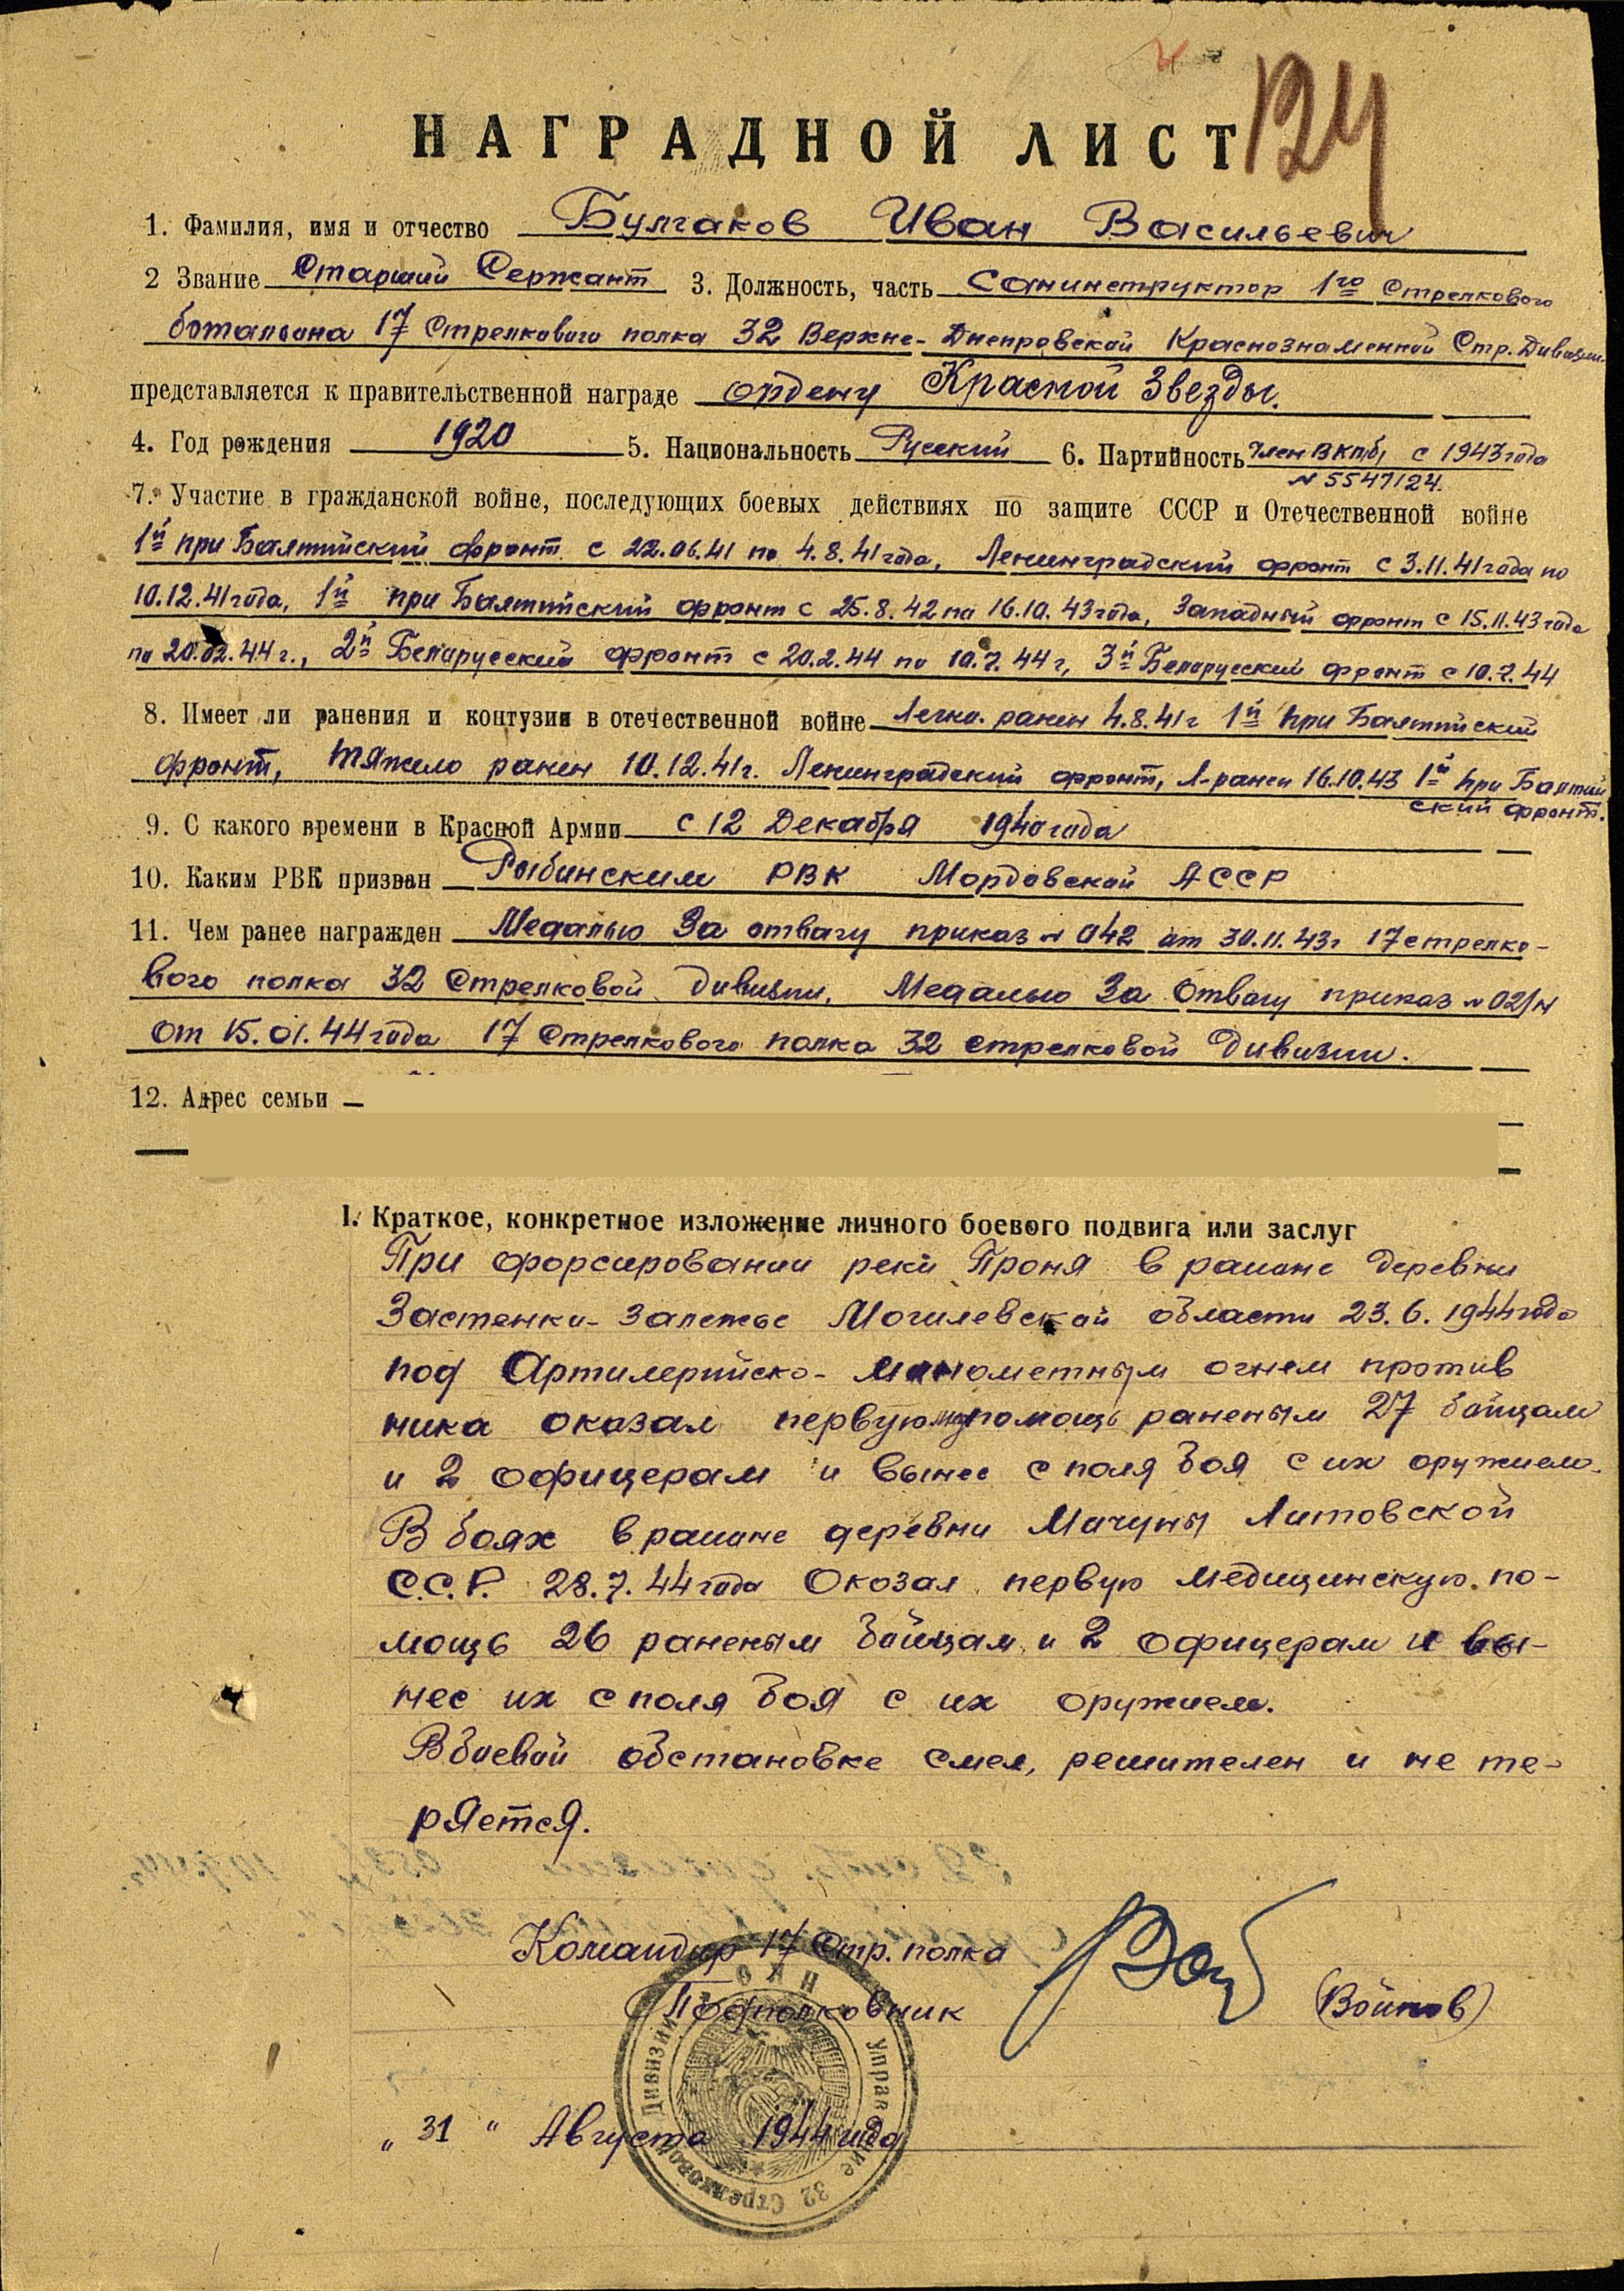 124
НАГРАДНОЙ ЛИСТ
1. Фамилия, имя и отчество Булгаков Иван Васильевич
2 Звание Старший Сержант 3. Должность, часть Санинструктор 1го Стрелкового
батальона 17 Стрелкового полка 32 Верхне-Днепровской Краснознаменной Стр. Дивизии
представляется к правительственной награде ордену Красной Звезды.
4. Год рождения 1920 5. Национальность Русский 6. Партийность Член ВКП/б/ с 1943 года
N 5547124.
7. Участие в гражданской войне, последующих боевых действиях по защите СССР и Отечественной войне
1й при Балтийский фронт с 22.06.41 по 4.8.41 года, Ленинградский фронт с 3.11.41 года по
10.12.41 года, 1й при Балтийский фронт с 25.8.42 по 16.10.43 года, Западный фронт с 15.11.43 года
по 20.02.44 г., 2й Беларусский фронт с 20.2.44 по 10.7.44 г, 3й Беларусский фронт с 10.7.44
8. Имеет ли ранения и контузии в отечественной войне Легко. ранен 4.8.41г 1й при Балтийский
фронт, тяжело ранен 10.12.41г. Ленинградский фронт, л-ранен 16.10.43 1й при Балтий
ский фронт.
9. С какого времени в Красной Армии с 12 Декабря 1940 года
10. Каким РВК призван Рыбинским РВК Мордовской АССР
11. Чем ранее награжден Медалью За отвагу приказ N 042 от 30.11.43г 17 стрелко-
вого полка 32 Стрелковой Дивизии, Медалью За Отвагу приказ N 02/н
от 15.01.44 года 17 Стрелкового полка 32 стрелковой Дивизии.
12. Адрес семьи
I. Краткое, конкретное изложение личного боевого подвига или заслуг
При форсировании реки Проня в раионе деревни
Застенки-Залежье Могилевской области 23.6.1944 года
под Артилерийско-минометным огнем против
ника оказал первую мед помощь раненым 27 бойцам
и 2 офицерам и вынес с поля боя с их оружием.
В боях в раионе деревни Мачуны Литовской
С.С.Р. 28.7.44 года Окозал первую медицинскую по-
мощь 26 раненым бойцам и 2 офицерам и вы-
нес их с поля боя с их оружием.
В боевой обстановке смел, решителен и не те-
ряется.
Командир 17 Стр. полка
Подполковник (Войнов)
„31“ Августа 1944 года
НКО Управление 32 Стрелковой Дивизии